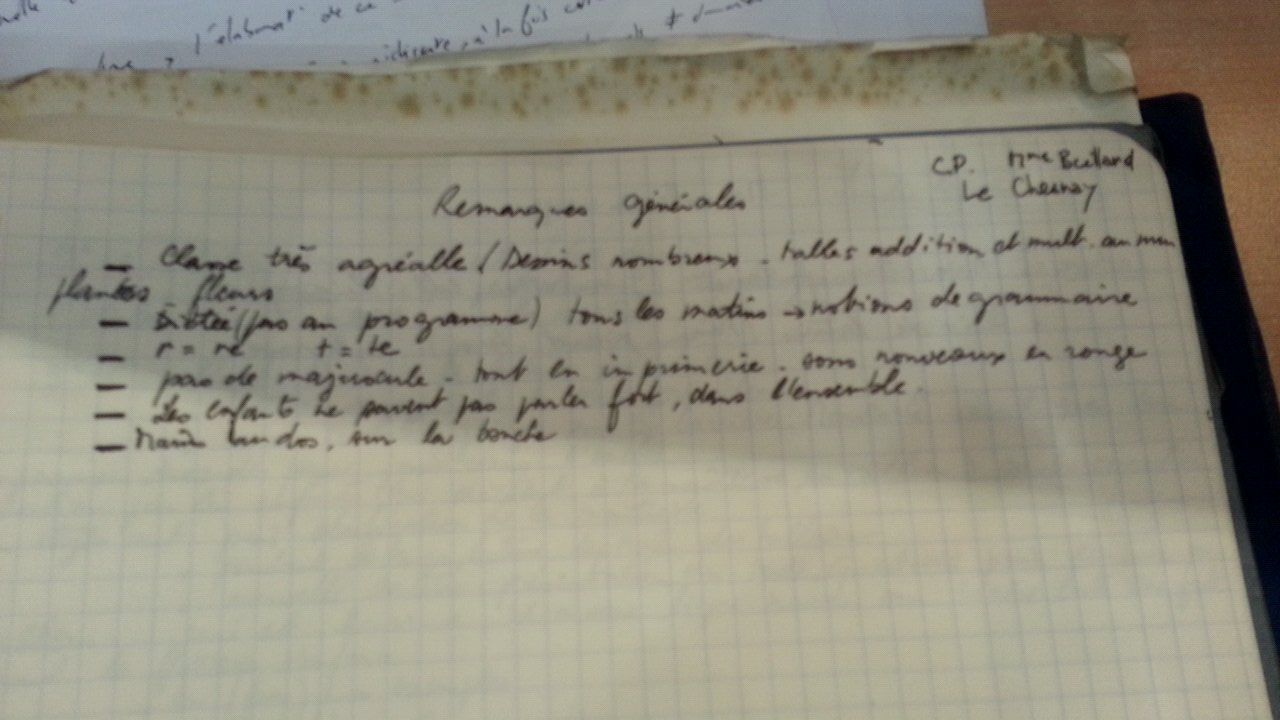 l'élaborat° de ce
, à la fois
C.P. Mme
Le Chesnay
Remarques générales
— Classe très agréable (Dessins nombreux - tables addition et mult. au mur
plantes fleurs
— Dictée (pas au programme) tous les matins → notions de grammaire
— r = re t = te
— pas de majuscule - tout en imprimerie - sons nouveaux en rouge
— Les enfants ne savent pas parler fort, dans l'ensemble.
— Mains au dos, sur la bouche